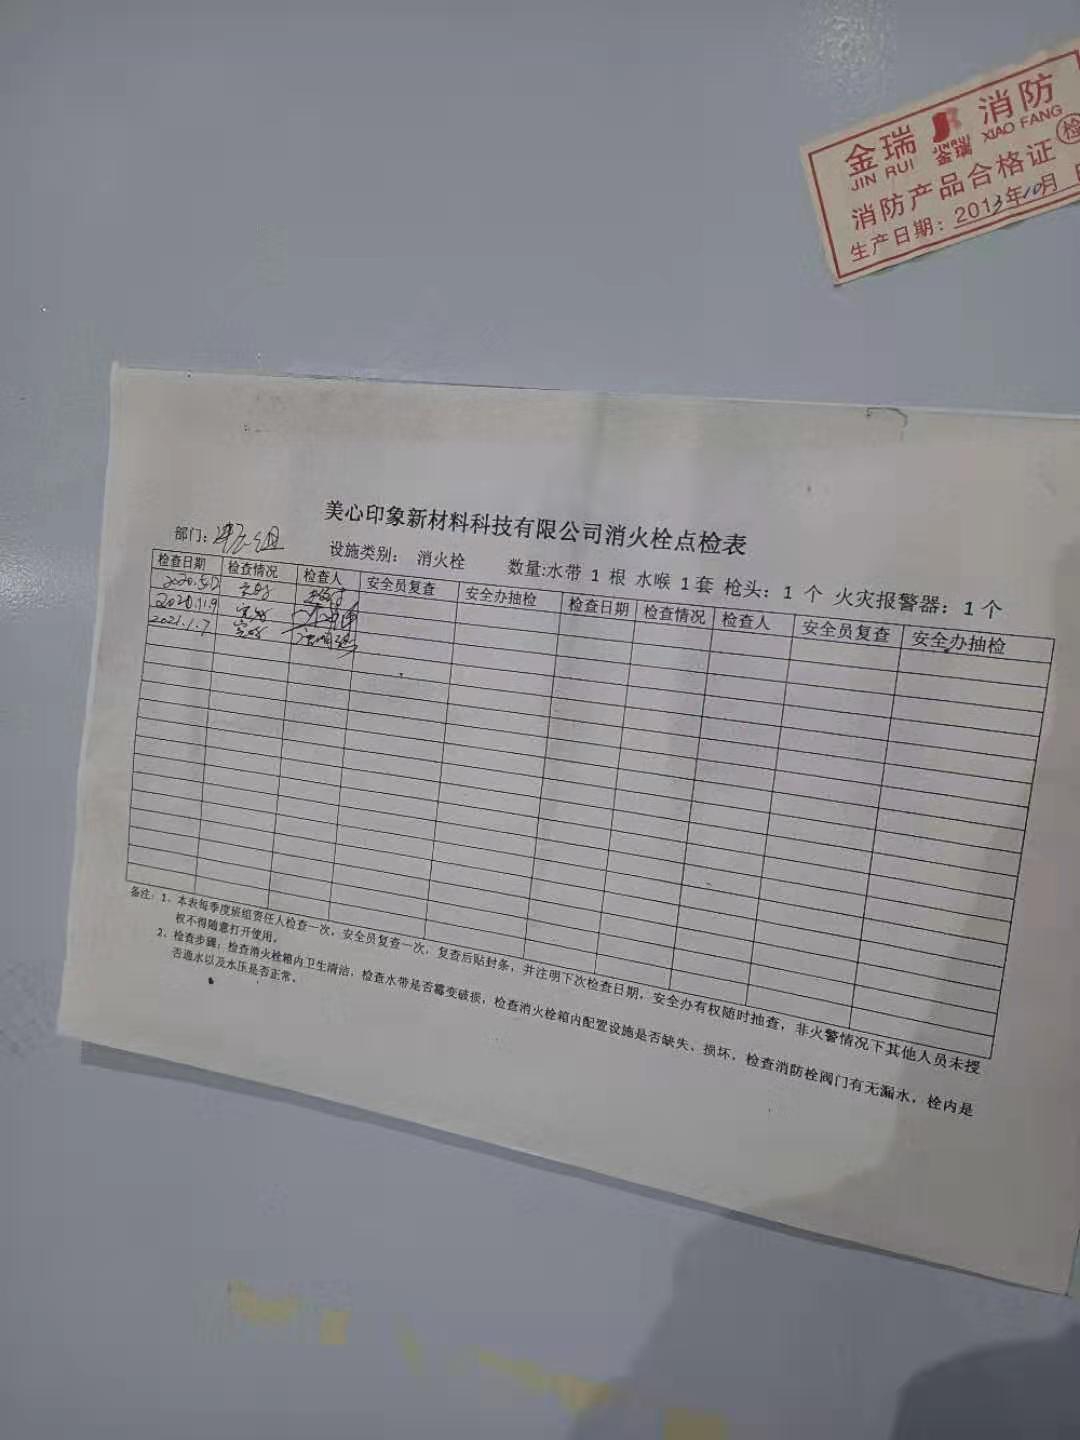 金瑞 消防
JIN RUI JINRUI XIAO FANG
金瑞
消防产品合格证 检
生产日期：2013年10月
美心印象新材料科技有限公司消火栓点检表
部门：组
设施类别： 消火栓 数量:水带 1 根 水喉 1套 枪头：1 个 火灾报警器：1个
检查日期 检查情况 检查人 安全员复查 安全办抽检 检查日期 检查情况 检查人 安全员复查 安全办抽检
2020.5.12 完好
2020.11.9 完好
2021.1.7 完好
备注：1、本表每季度班组责任人检查一次，安全员复查一次，复查后贴封条，并注明下次检查日期，安全办有权随时抽查，非火警情况下其他人员未授
权不得随意打开使用。
2、检查步骤：检查消火栓箱内卫生清洁，检查水带是否霉变破损，检查消火栓箱内配置设施是否缺失、损坏，检查消防栓阀门有无漏水，栓内是
否造水以及水压是否正常。